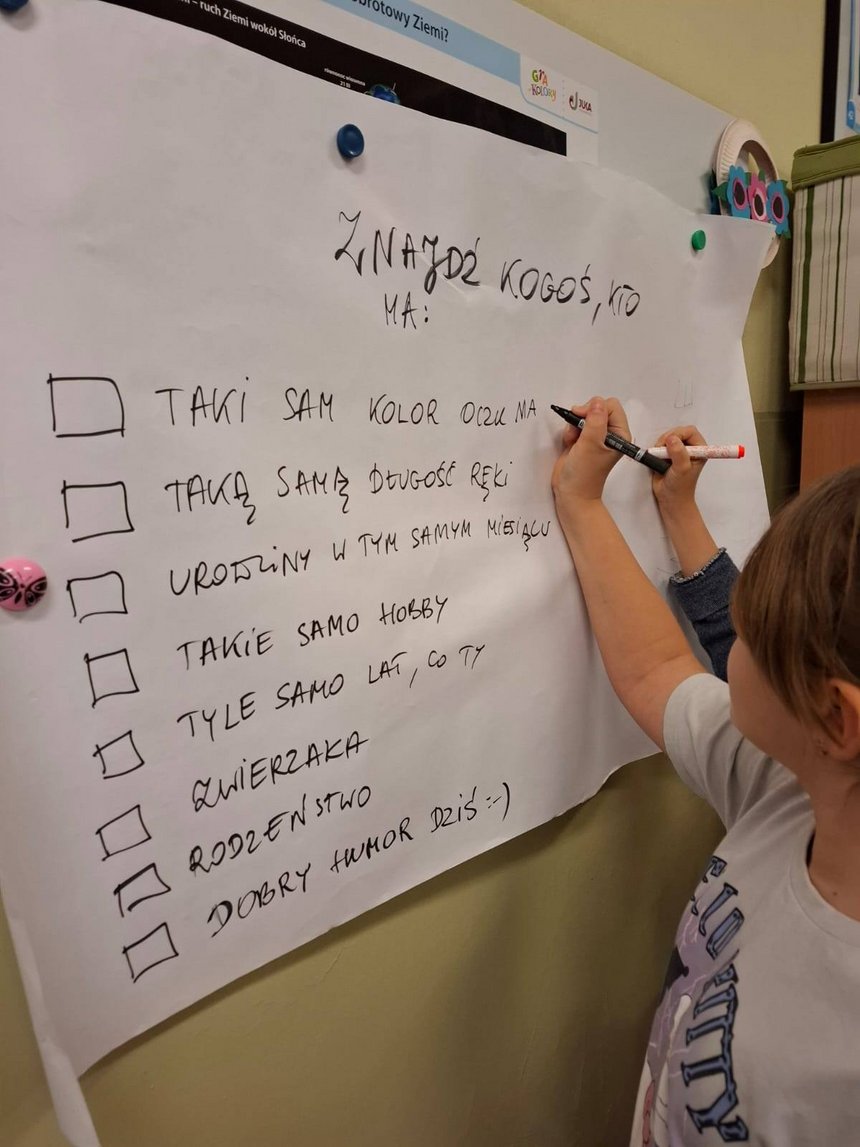 – ruch Ziemi wokół Słońca
brotowy Ziemi?
GRA
KOLORY
JUKA
ZNAJDŹ KOGOŚ, KTO
MA:
TAKI SAM KOLOR OCZU MA
TAKĄ SAMĄ DŁUGOŚĆ RĘKI
URODZINY W TYM SAMYM MIESIĄCU
TAKIE SAMO HOBBY
TYLE SAMO LAT, CO TY
ZWIERZAKA
RODZEŃSTWO
DOBRY HUMOR DZIŚ :-)